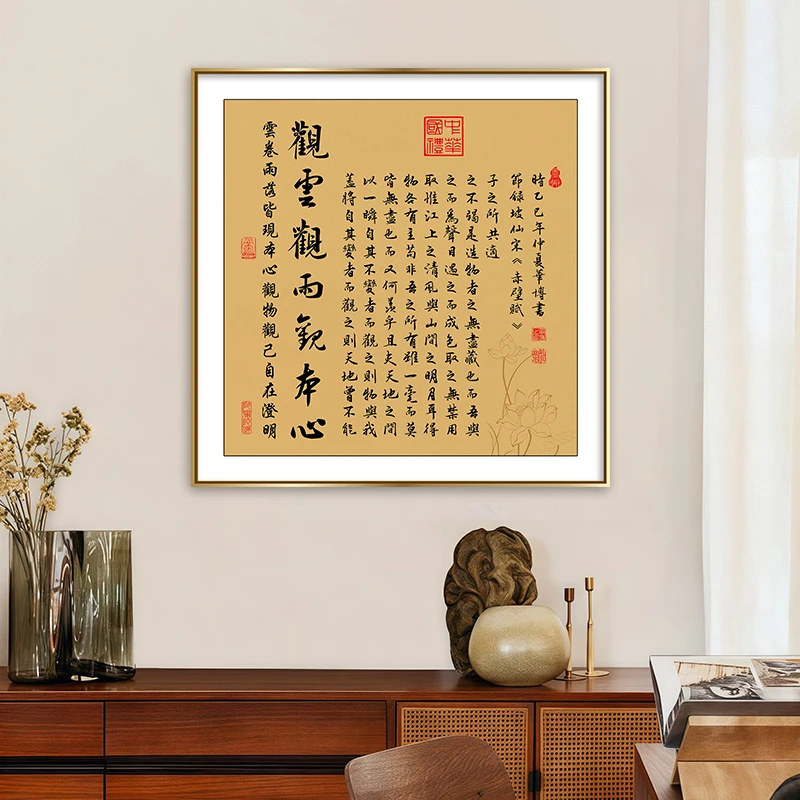 中華
國禮
雲卷雨落皆現本心觀物觀己自在澄明
觀雲觀雨觀本心
蓋將自其變者而觀之則天地曾不能
以一瞬自其不變者而觀之則物與我
皆無盡也而又何羨乎且夫天地之間
物各有主苟非吾之所有雖一毫而莫
取惟江上之清風與山間之明月耳得
之而為聲目遇之而成色取之無禁用
之不竭是造物者之無盡藏也而吾與
子之所共適
節錄坡仙宋《赤壁賦》
時乙巳年仲夏華博書